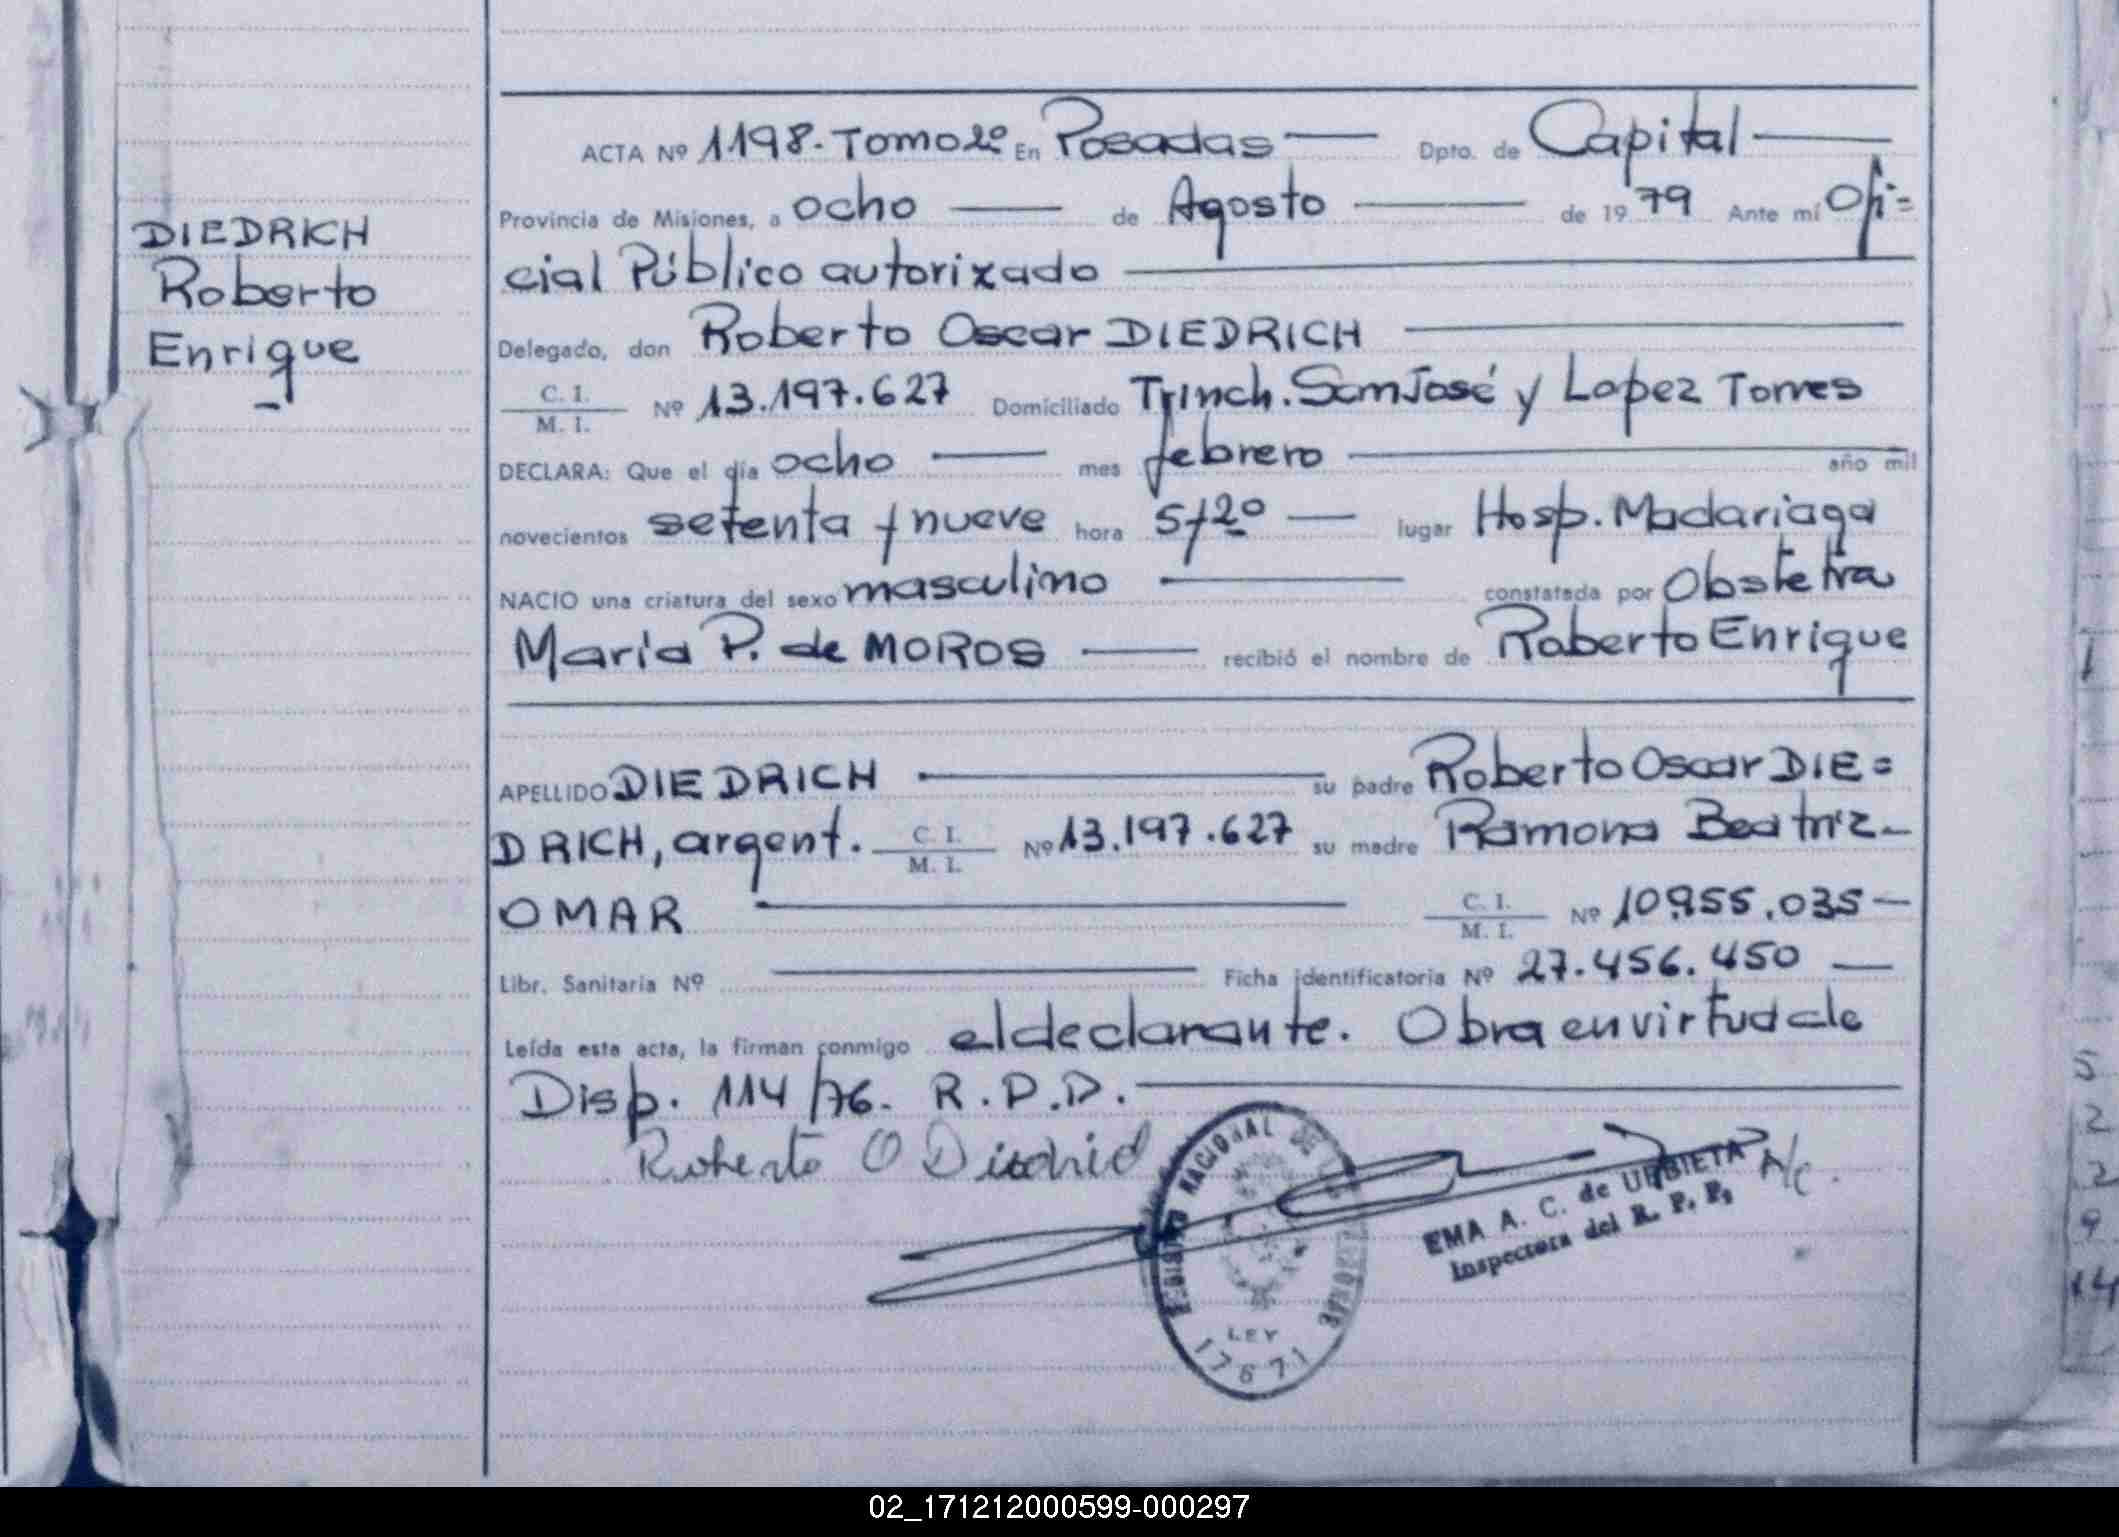 ACTA Nº 1198. Tomo 2º En Posadas Dpto. de Capital
Provincia de Misiones, a ocho de Agosto de 1979 Ante mí Ofi=
cial Público autorizado
Delegado, don Roberto Oscar DIEDRICH
C. I.
M. I. Nº 13.197.627 Domiciliado Trinch. San José y Lopez Torres
DECLARA: Que el día ocho mes febrero año mil
novecientos setenta y nueve hora 5/2º lugar Hosp. Madariaga
NACIO una criatura del sexo masculino constatada por Obstetra
María P. de MOROS recibió el nombre de Roberto Enrique
APELLIDO DIEDRICH su padre Roberto Oscar DIE=
DRICH, argent. C. I.
M. I. Nº 13.197.627 su madre Ramona Beatriz
OMAR C. I.
M. I. Nº 10.955.035
Libr. Sanitaria Nº Ficha identificatoria Nº 27.456.450
Leída esta acta, la firman conmigo el declarante. Obra en virtud de
Disp. 114/76. R.P.D.
Roberto O
REGISTRO NACIONAL DE LAS PERSONAS
LEY
17671
EMA A. C. de URBIETA A/c.
Inspectora del R. P. P.
DIEDRICH
Roberto
Enrique
5
2
2
9
14
02_171212000599-000297